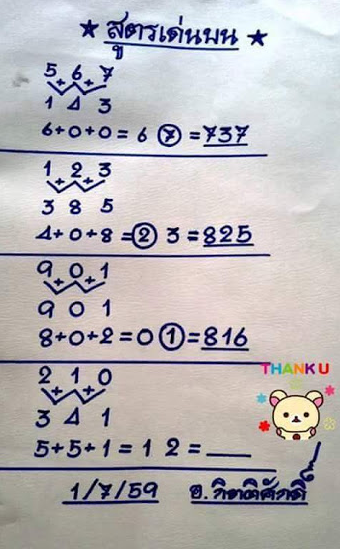 ★ สูตรเด่นบน ★
5 + 6 + 7
1 4 3
6+0+0 = 6 ⑦ = 737
1 + 2 + 3
3 8 5
4+0+8 = ② 3 = 825
9 + 0 + 1
9 0 1
8+0+2 = 0 ① = 816
THANK U
2 + 1 + 0
3 4 1
5+5+1 = 1 2 = ___
1/7/59 อ. กิตติศักดิ์